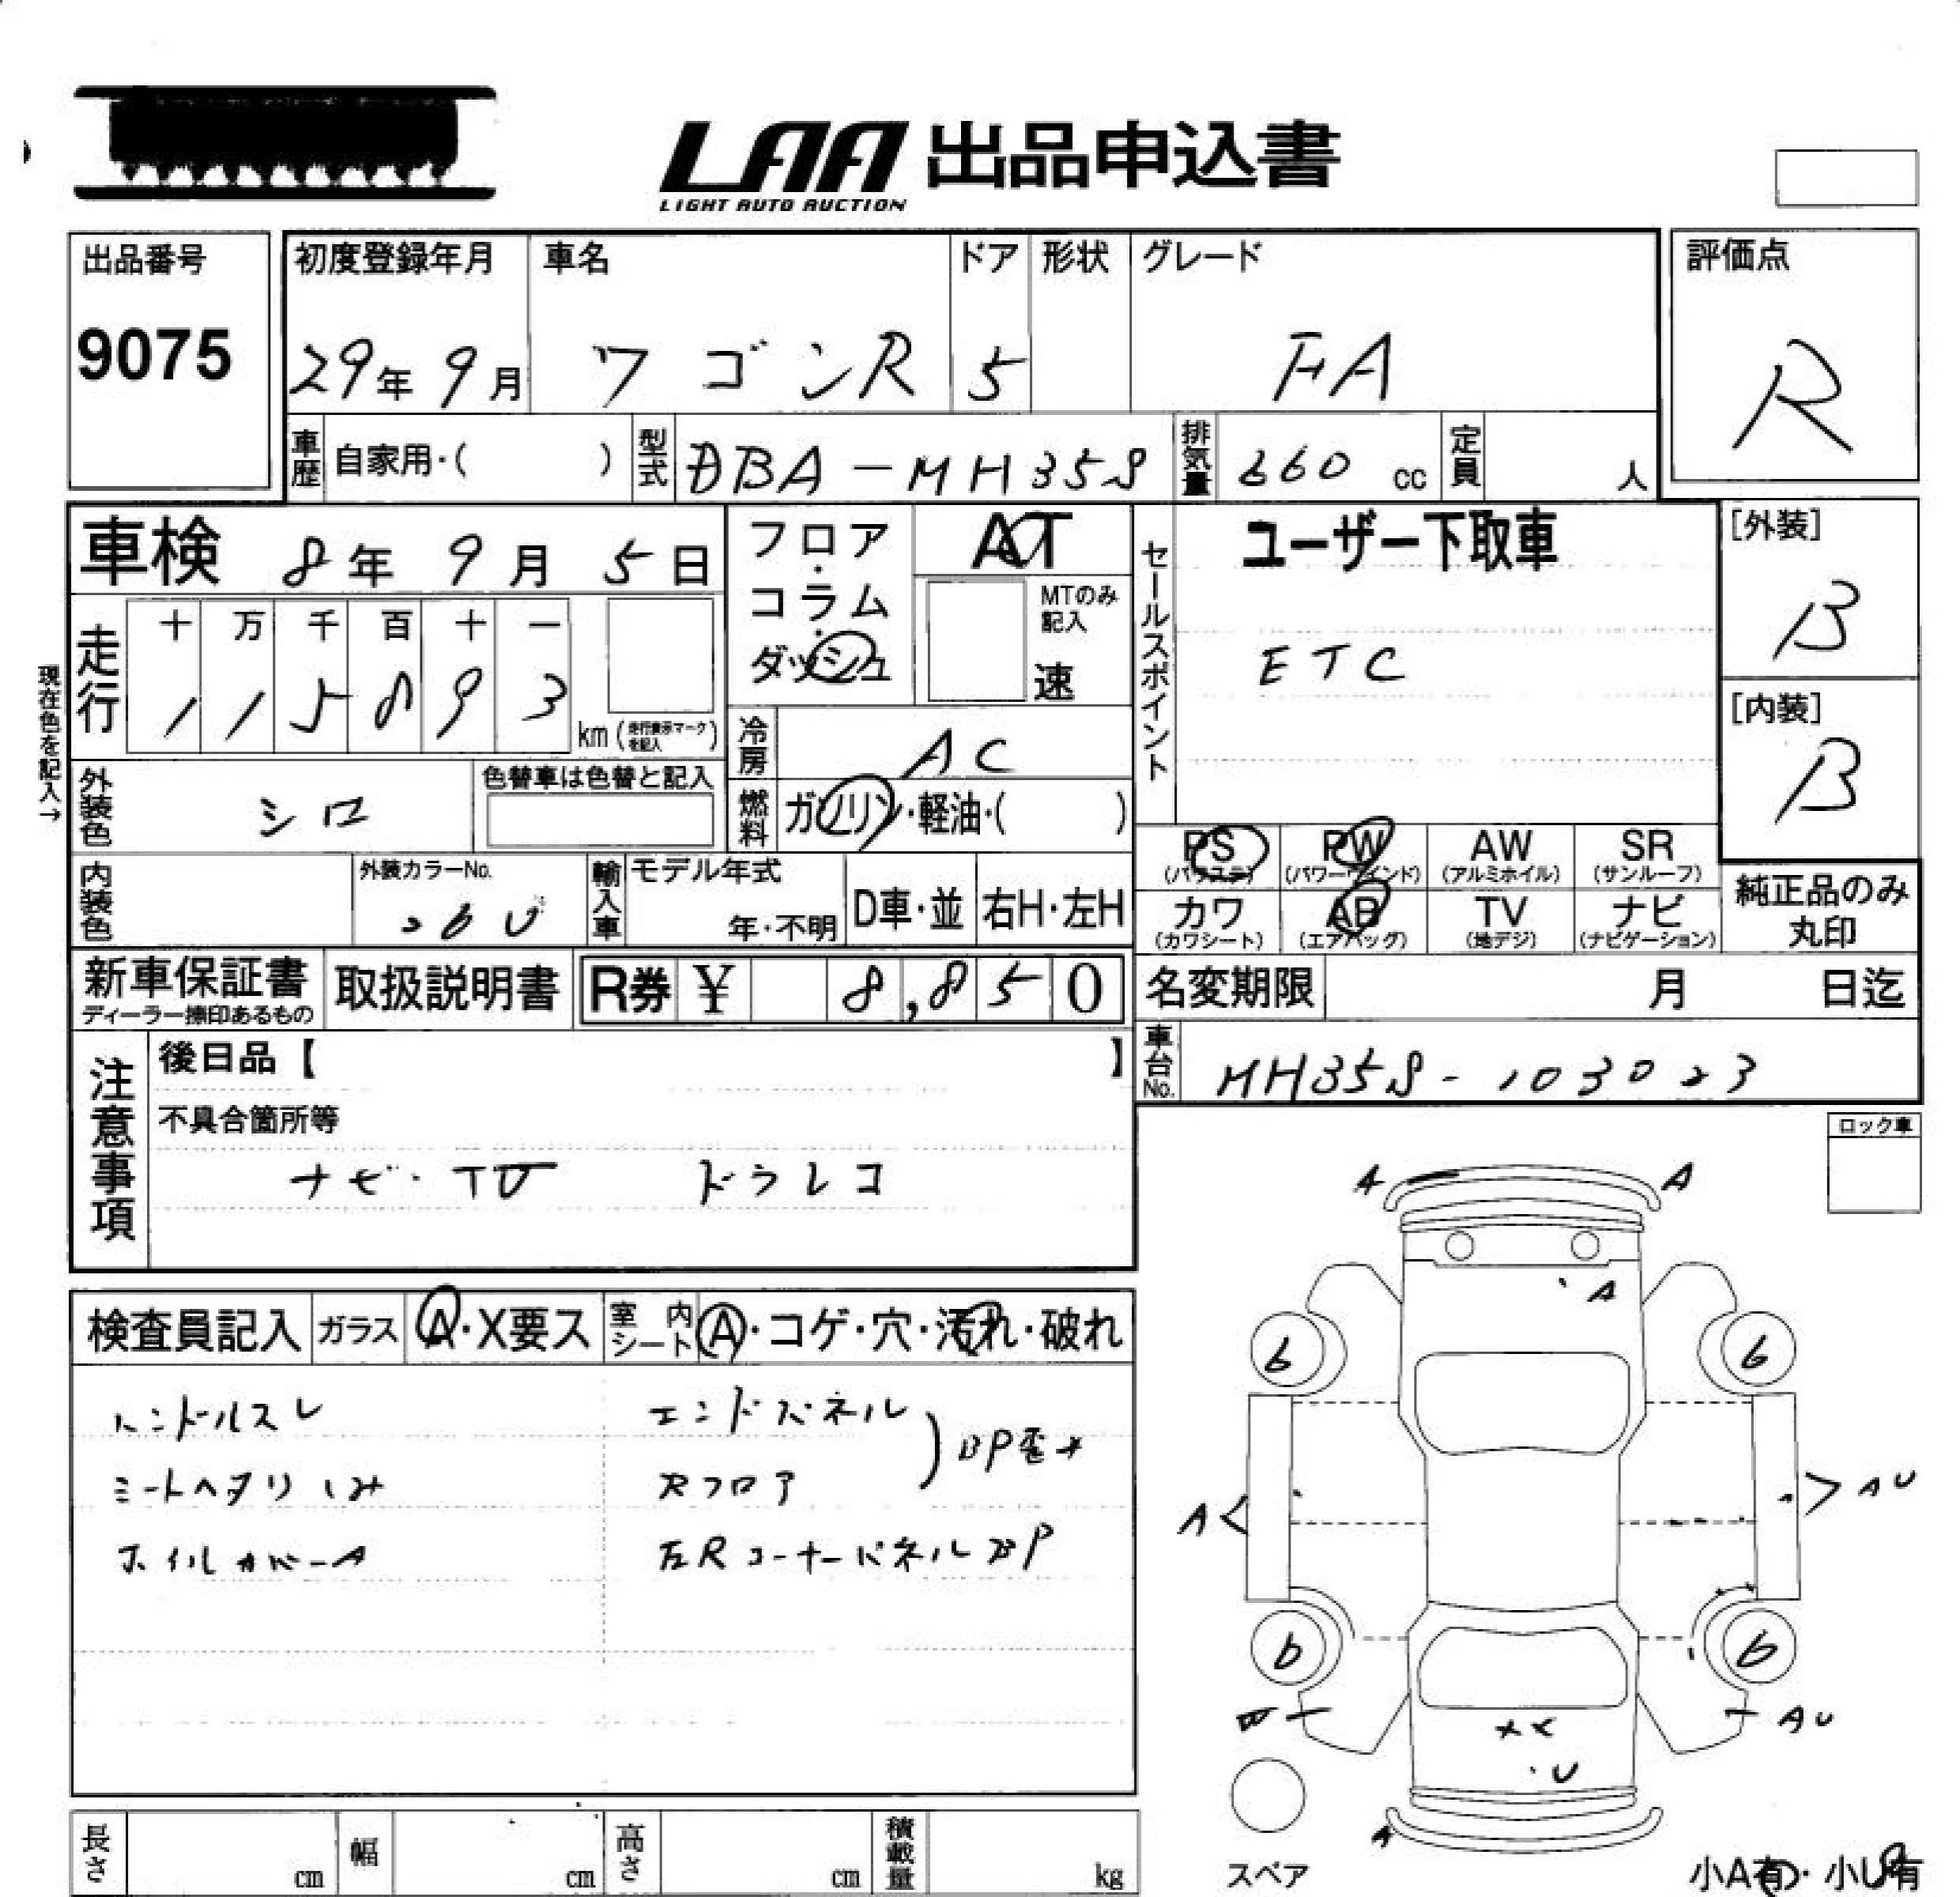 LAA 出品申込書
LIGHT AUTO AUCTION
出品番号
9075
初度登録年月
29年 9月
車名
ワゴンR
ドア
5
形状
グレード
FA
評価点
R
車歴 自家用・( )
型式 DBA-MH35S
排気量 660 cc
定員 人
車検 8年 9月 5日
フロア・コラム・ダッシュ
AT
MTのみ記入
速
セールスポイント
ユーザー下取車
ETC
[外装]
B
[内装]
B
現在色を記入→
走行
十 万 千 百 十 一
1 1 5 8 9 3
km (走行表示マークを記入)
冷房 AC
外装色 シロ
色替車は色替と記入
燃料 ガソリン・軽油・( )
PS (パワステ)
PW (パワーウインド)
AW (アルミホイル)
SR (サンルーフ)
カワ (カワシート)
AB (エアバッグ)
TV (地デジ)
ナビ (ナビゲーション)
純正品のみ丸印
内装色
外装カラーNo.
26U
輸入車
モデル年式
年・不明
D車・並
右H・左H
新車保証書
ディーラー捺印あるもの
取扱説明書
R券 ¥ 8,850
名変期限 月 日迄
車台No. MH35S-103023
注意事項
後日品【 】
不具合箇所等
ナビ・TV ドラレコ
ロック車
検査員記入
ガラス A・X要ス
室内シート A・コゲ・穴・汚れ・破れ
ハンドルスレ
シートヘタリ シミ
ホイルカバーA
エンドパネル
Rフロア
BP歪み
左RコーナーパネルBP
A A
A
6 6
A AU
6 6
W AU
XX
U
A
スペア
小A有・小U有
長さ cm
幅 cm
高さ cm
積載量 kg